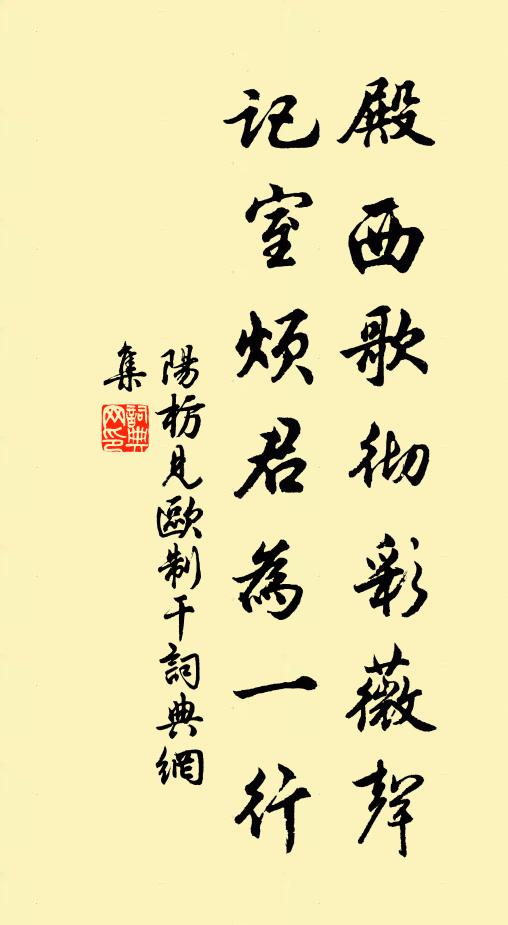 殿西歌彻彩薇聲
記室煩君為一行
陽枋見歐制干詞典網
集
詞典網印